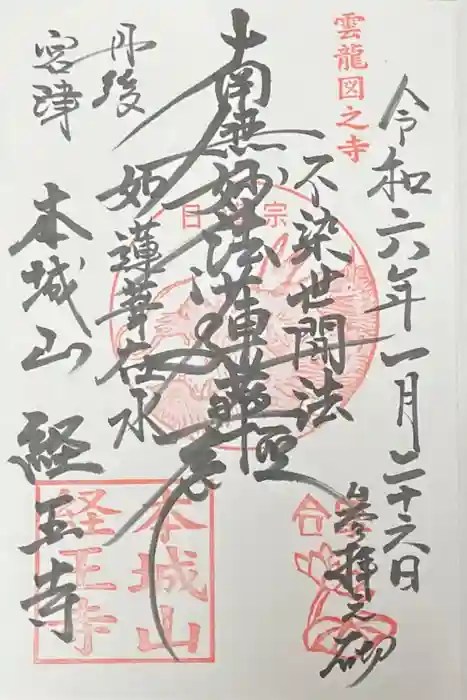 雲龍図之寺
令和六年一月二十六日
参拝之砌
不染世間法
南無妙法蓮華経
如蓮華在水
丹後
宮津
本城山 経王寺
日
宗
合
本城山
経王寺